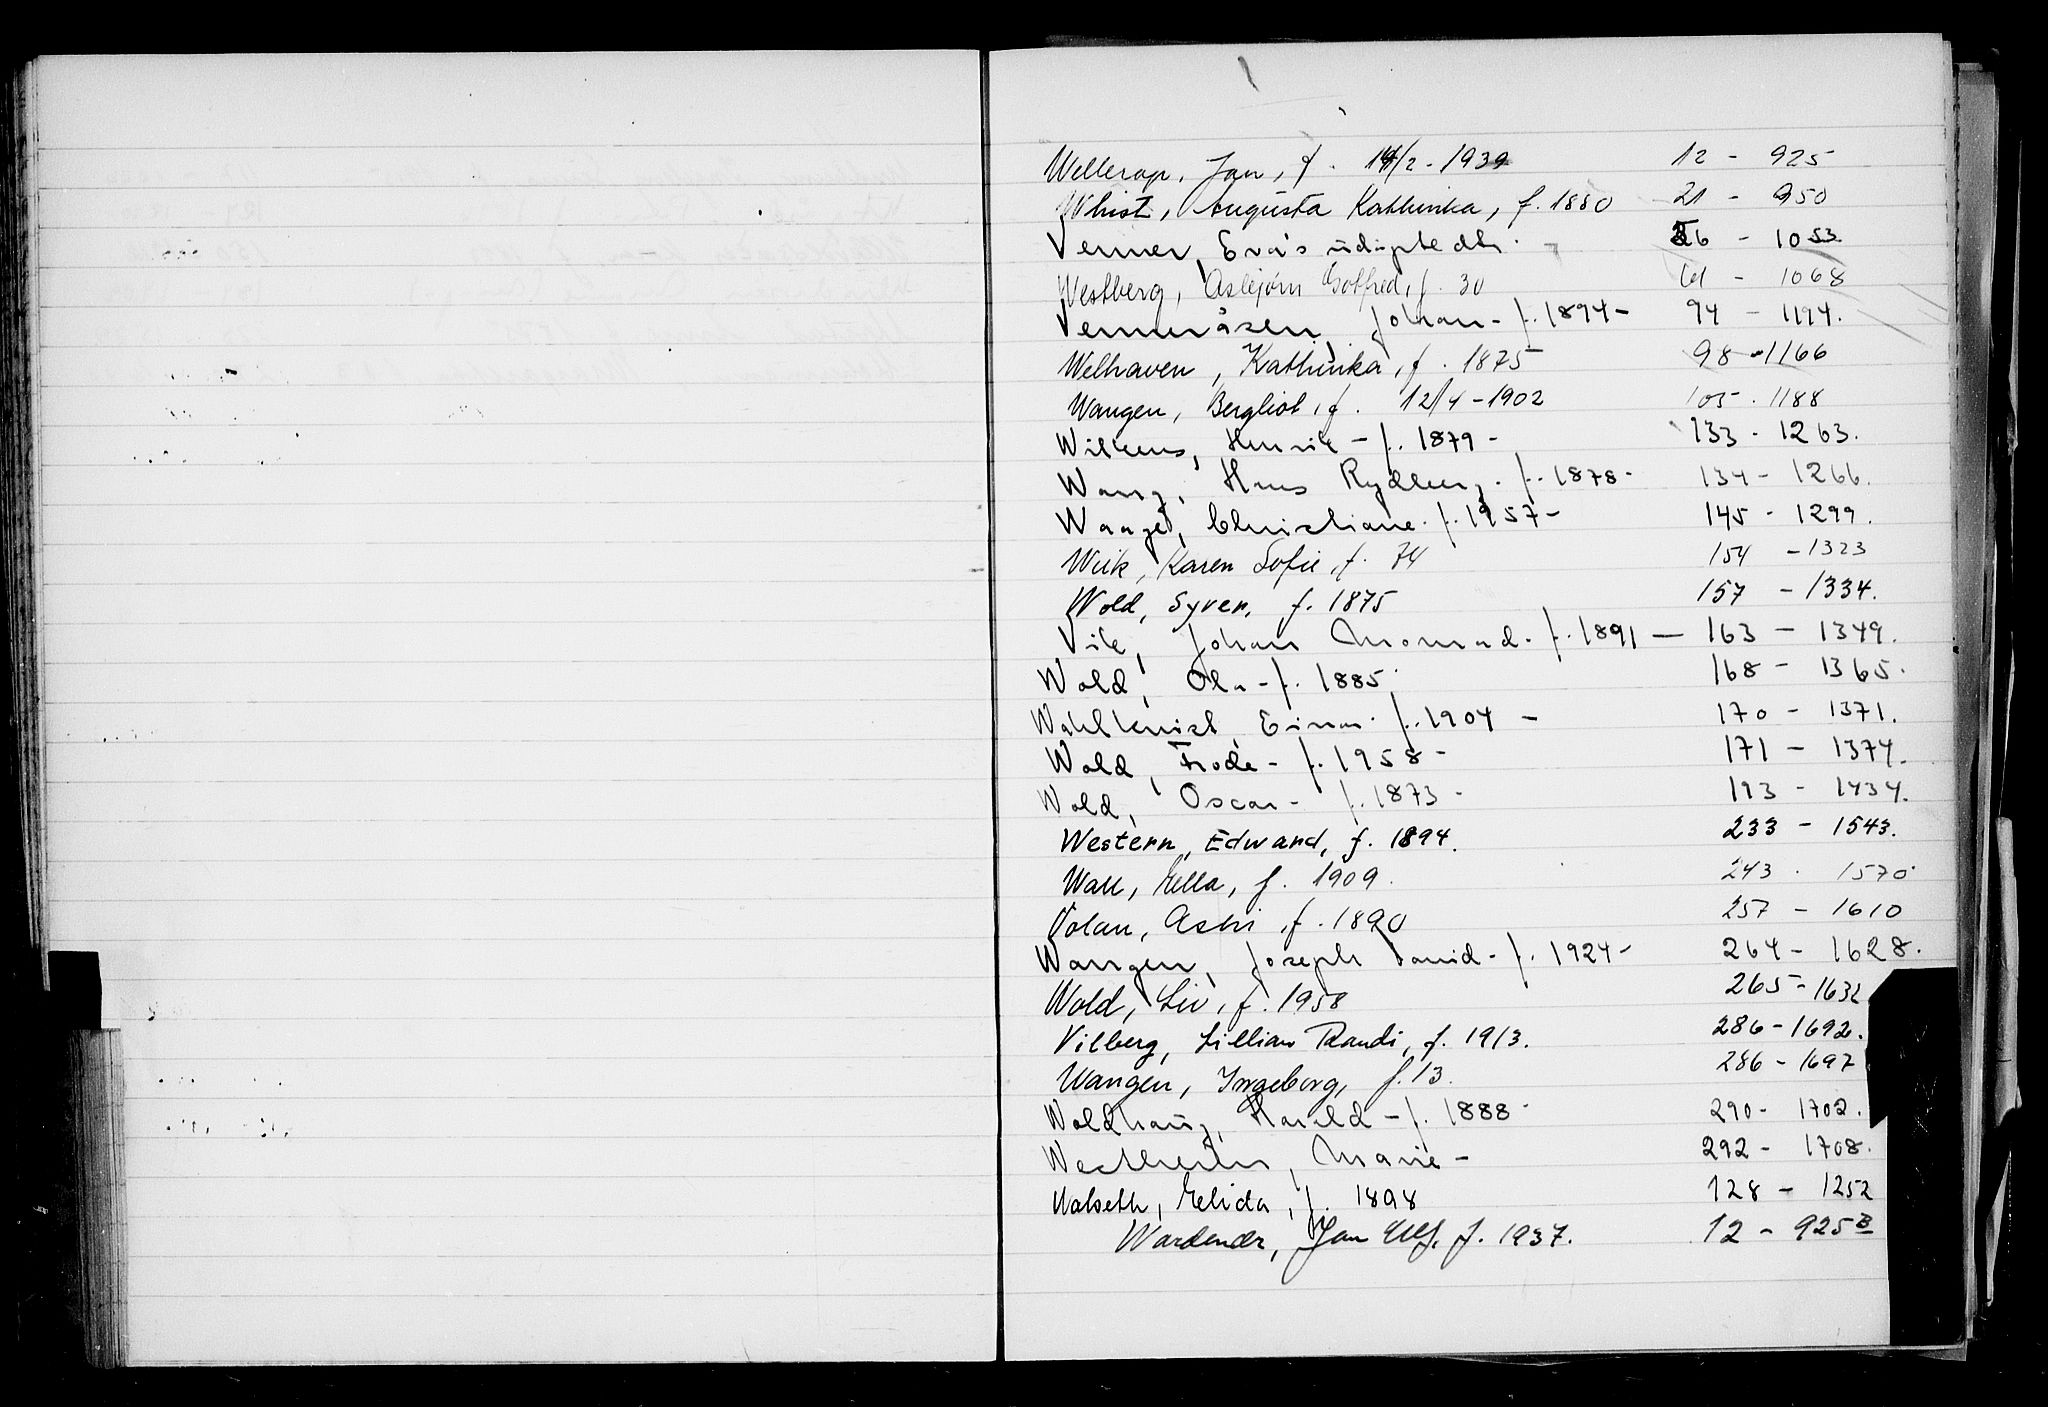 Wellerop, Jan, f. 14/2 - 1939 12 - 925
Whist, Augusta Kathinka, f. 1880 21 - 950
Venner, Eva's udøpte dtr. 56 - 1053.
Westberg, Asbjørn Gotfred, f. 30 61 - 1068
Venneråsen, Johan - f. 1894 - 94 - 1194.
Welhaven, Kathinka, f. 1875 98 - 1166
Wangen, Bergliot, f. 12/4 - 1902 105 - 1188
Wilkens, Henrik - f. 1879 - 133 - 1263.
Wang, Hans Rydberg. f. 1878 - 134 - 1266.
Waage, Christiane. f. 1957 - 145 - 1299.
Wiik, Karen Sofie, f. 74 154 - 1323
Wold, Syver, f. 1875 157 - 1334.
Vik, Johan Monrad. f. 1891 — 163 - 1349.
Wold, Ola - f. 1885. 168 - 1365.
Wahlkvist, Einar. f. 1904 - 170 - 1371.
Wold, Frode - f. 1958 - 171 - 1374.
Wold, Oscar - f. 1873 - 193 - 1434.
Western, Edward, f. 1894. 233 - 1543.
Wall, Ella, f. 1909. 243 . 1570
Volan, Astri, f. 1890 257 - 1610
Wangen, Joseph David - f. 1924 - 264 - 1628.
Wold, Liv, f. 1958 265 - 1632
Vilberg, Lillian Randi, f. 1913. 286 - 1692.
Wangen, Ingeborg, f. 13. 286 - 1697
Woldhaug, Harald - f. 1888 - 290 - 1702.
Marie - 292 - 1708.
Walseth, Elida, f. 1898 128 - 1252
Wardener, Jan Ulf. f. 1937. 12 - 925 B